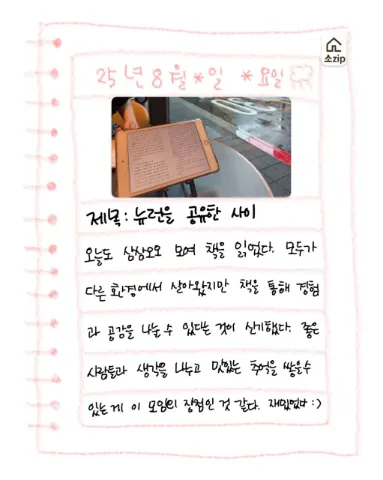 소zip
25년 8월 *일 *요일
제목: 뉴런을 공유한 사이
오늘도 삼삼오오 모여 책을 읽었다. 모두가
다른 환경에서 살아왔지만 책을 통해 경험
과 공감을 나눌 수 있다는 것이 신기했다. 좋은
사람들과 생각을 나누고 맛있는 추억을 쌓을수
있는게 이 모임의 장점인 것 같다. 재밌었다 :)